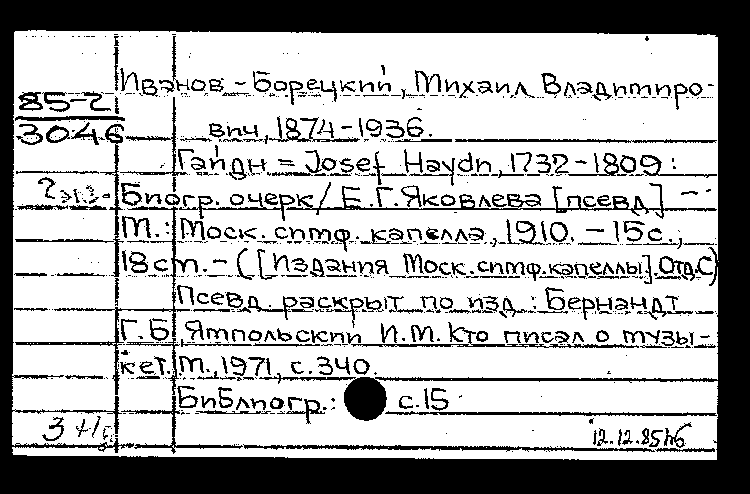 Иванов-Борецкий, Михаил Владимиро-
85-2
3046
вич, 1874-1936.
Гайдн = Josef Haydn, 1732-1809:
2 экз-
Биогр. очерк/ Е.Г.Яковлева [псевд] --
М.: Моск. симф. капелла, 1910. - 15с.,
18см. - ([Издания Моск.симф.капеллы].Отд.С)
Псевд. раскрыт по изд: Бернандт
Г.Б, Ямпольский И.М. Кто писал о музы-
ке т. М., 1971, с. 340.
Библиогр.: с.15
3
12.12.85